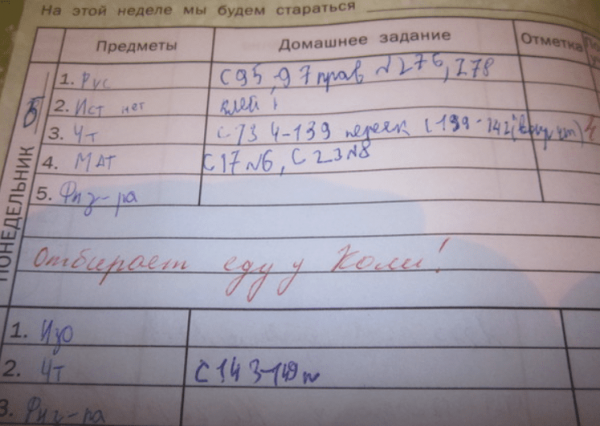 На этой неделе мы будем стараться
Предметы Домашнее задание Отметка
ПОНЕДЕЛЬНИК
1. Рус С 95, 97 прав №276, 278
2. Ист нет клей!
3. Чт с 134-139 перск с 139-142 4
4. МАТ С17 №6, С23 №8
5. Физ-ра
Отбирает еду у Коли!
1. Изо
2. Чт С 143-149
3. Физ-ра